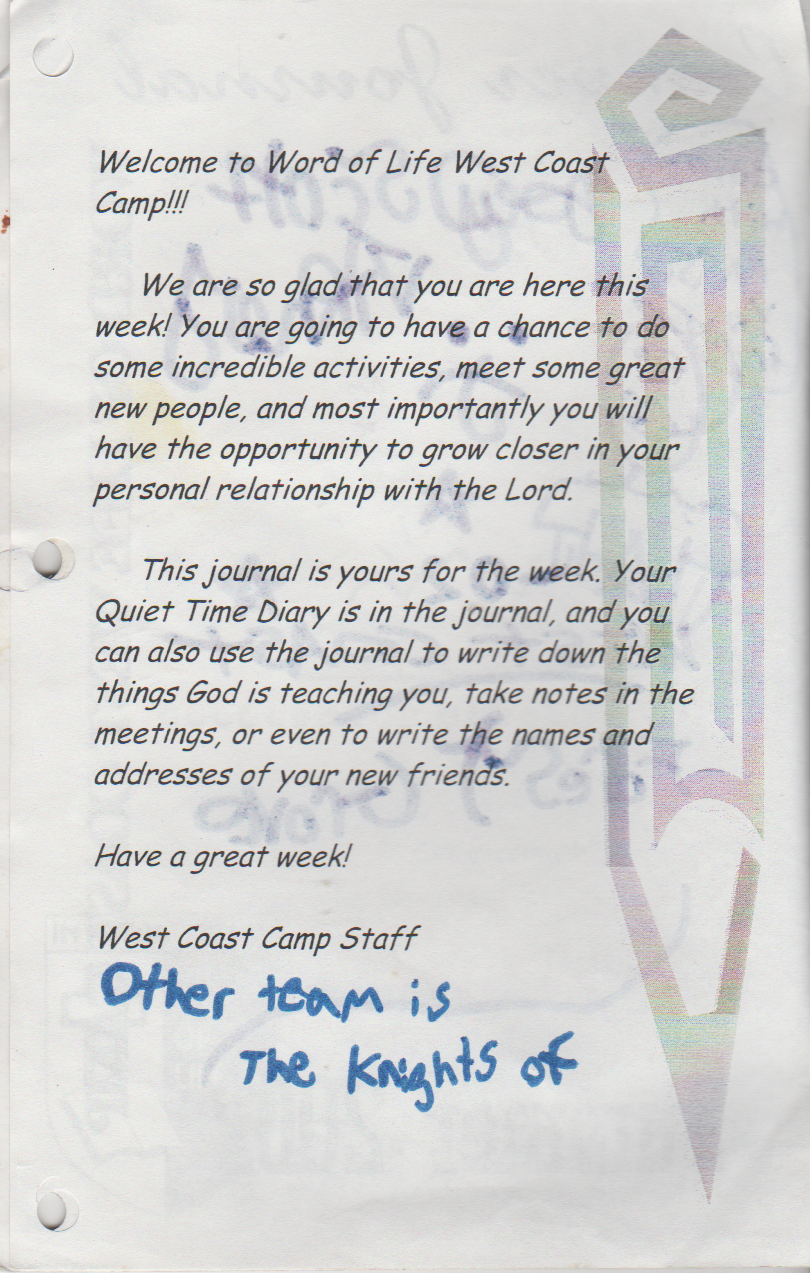 Welcome to Word of Life West Coast
Camp!!!
We are so glad that you are here this
week! You are going to have a chance to do
some incredible activities, meet some great
new people, and most importantly you will
have the opportunity to grow closer in your
personal relationship with the Lord.
This journal is yours for the week. Your
Quiet Time Diary is in the journal, and you
can also use the journal to write down the
things God is teaching you, take notes in the
meetings, or even to write the names and
addresses of your new friends.
Have a great week!
West Coast Camp Staff
Other team is
The Knights of